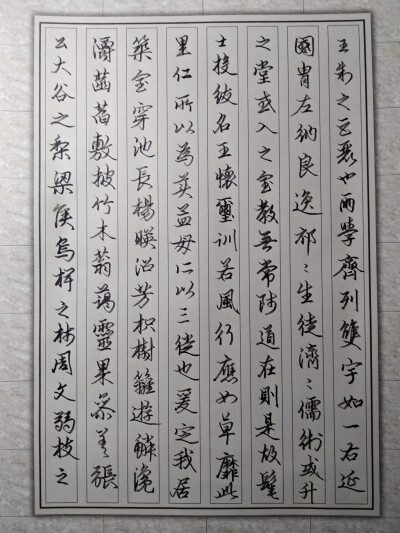 王制之巨麗也兩學齊列雙宇如一右延
國胄左納良逸祁〻生徒濟〻儒術或升
之堂或入之室教無常師道在則是故髦
士投紱名王懷璽訓若風行應如草靡此
里仁所以為美孟母所以三徙也爰定我居
築室穿池長楊暎沼芳枳樹籬遊鱗瀺
灂菡萏敷披竹木蓊藹靈果参差張
公大谷之梨梁侯烏椑之柿周文弱枝之